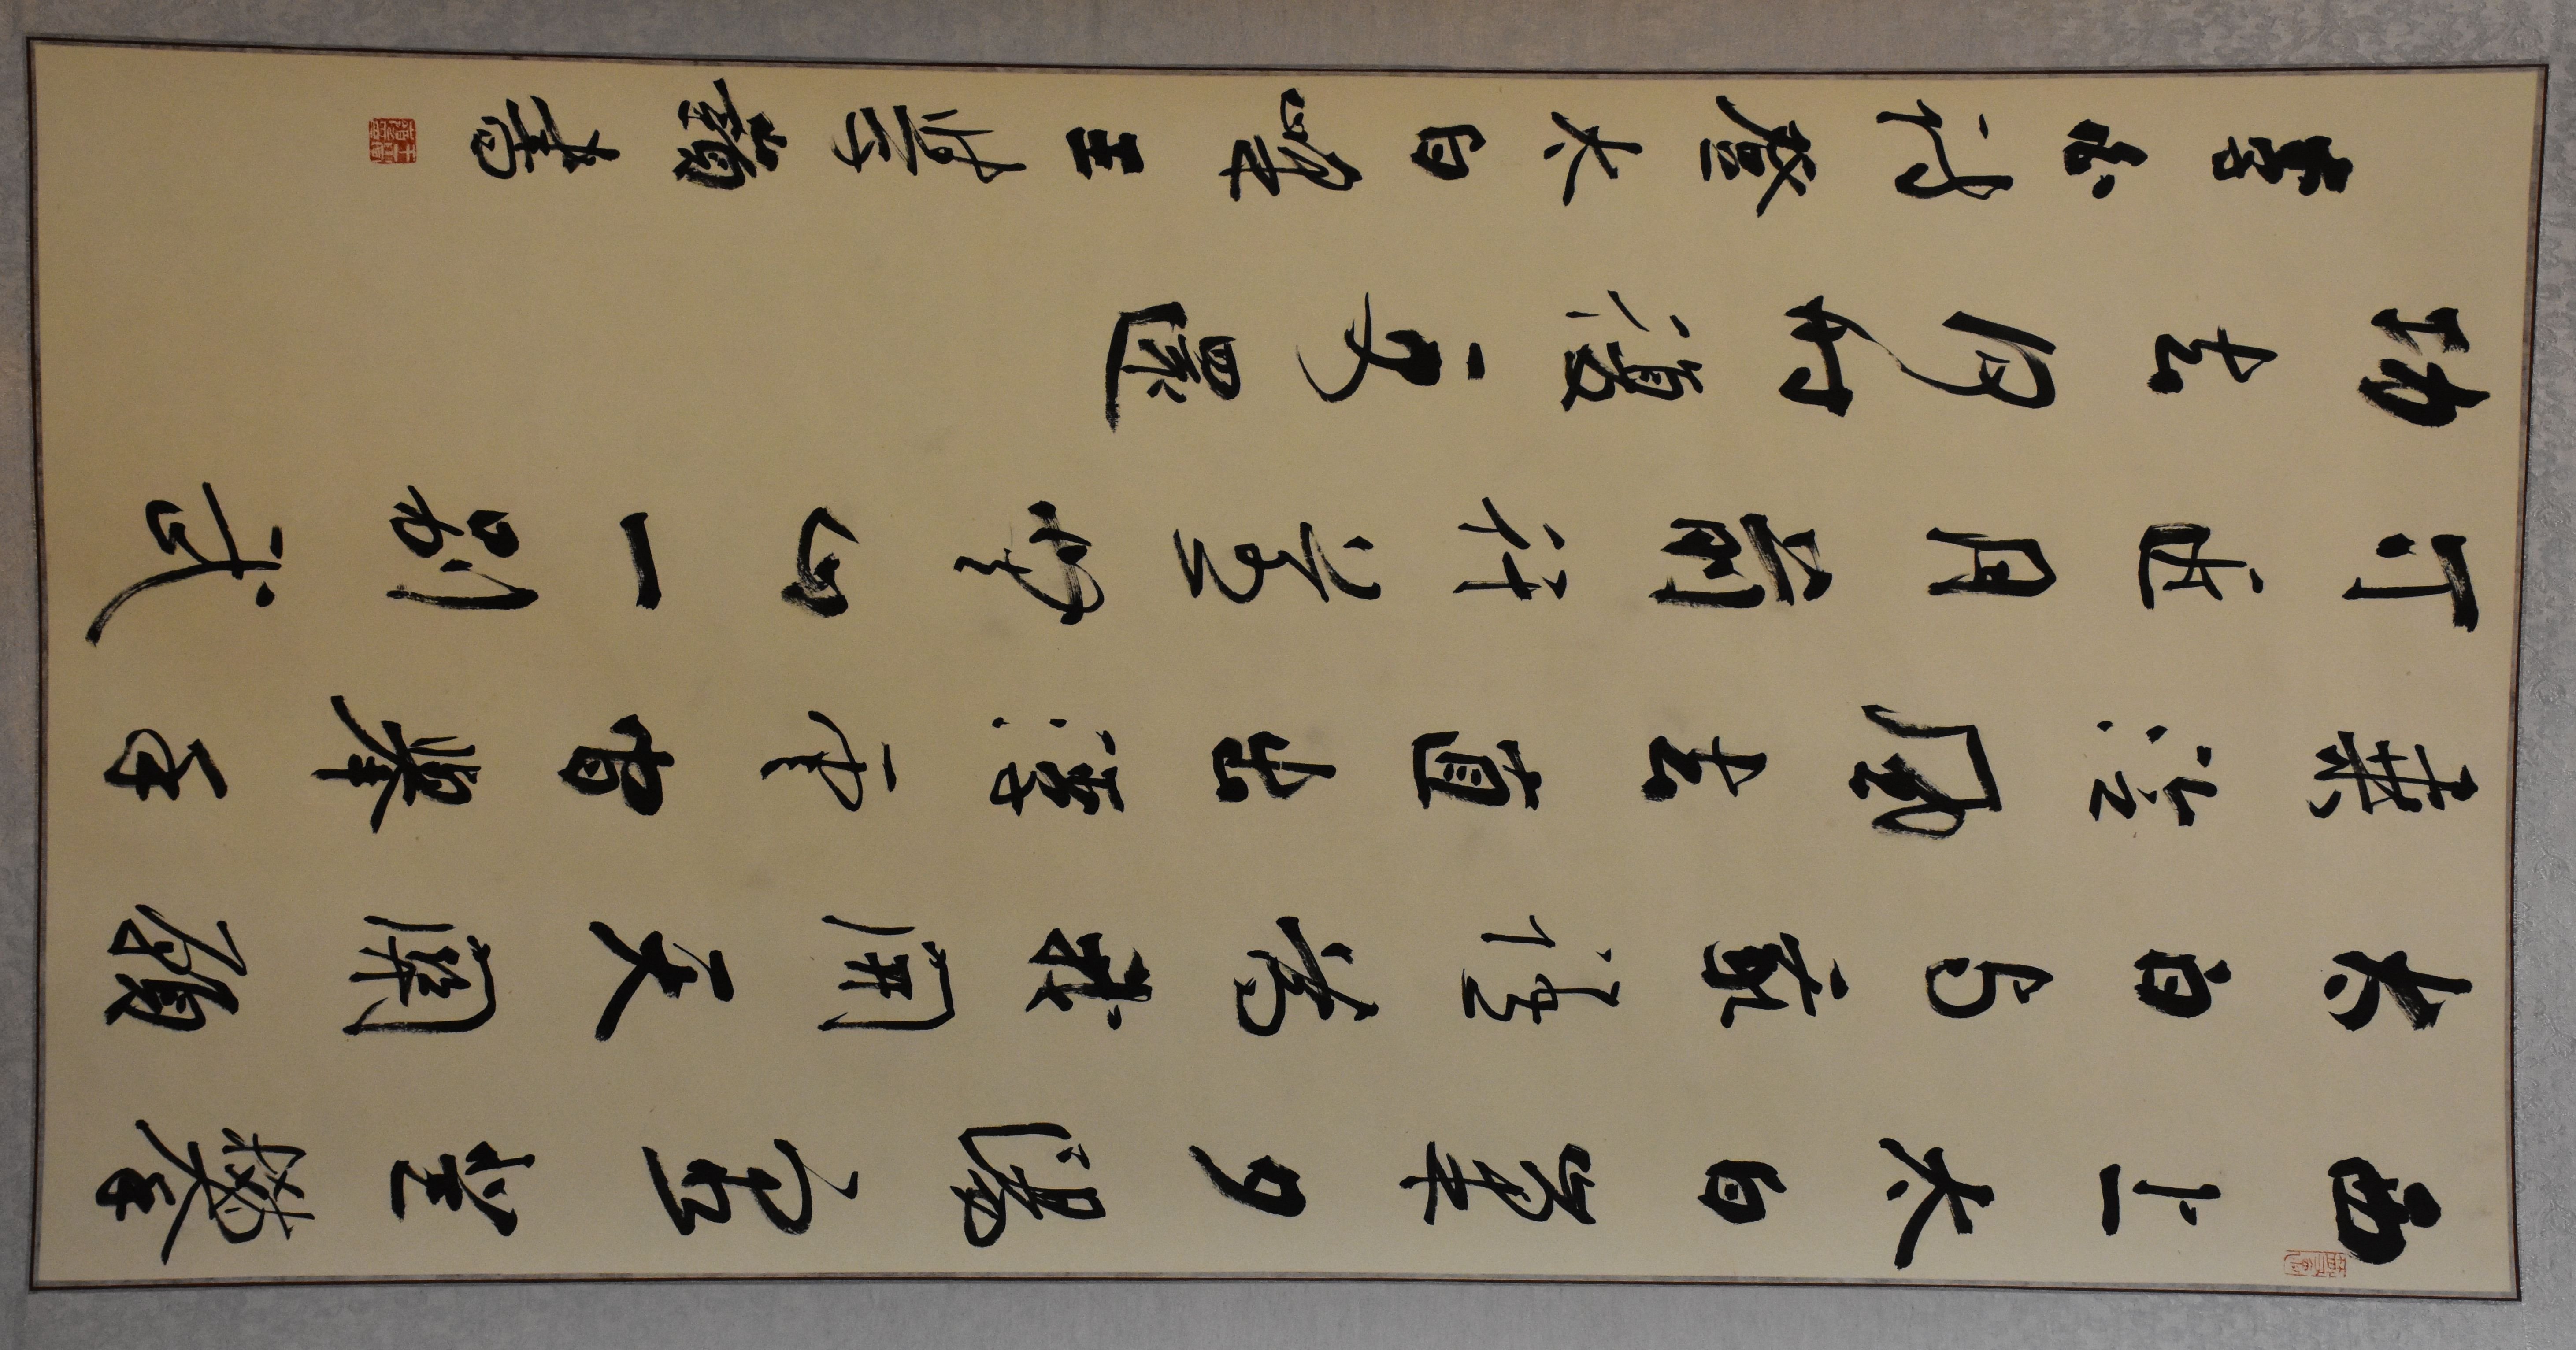 西上太白峯夕陽窮登攀
太白与我語為我開天關願
乘泠風去直出浮雲間舉手
可近月前行若無山一別武
功去何時復更還
李白詩登太白峯王學嶺書